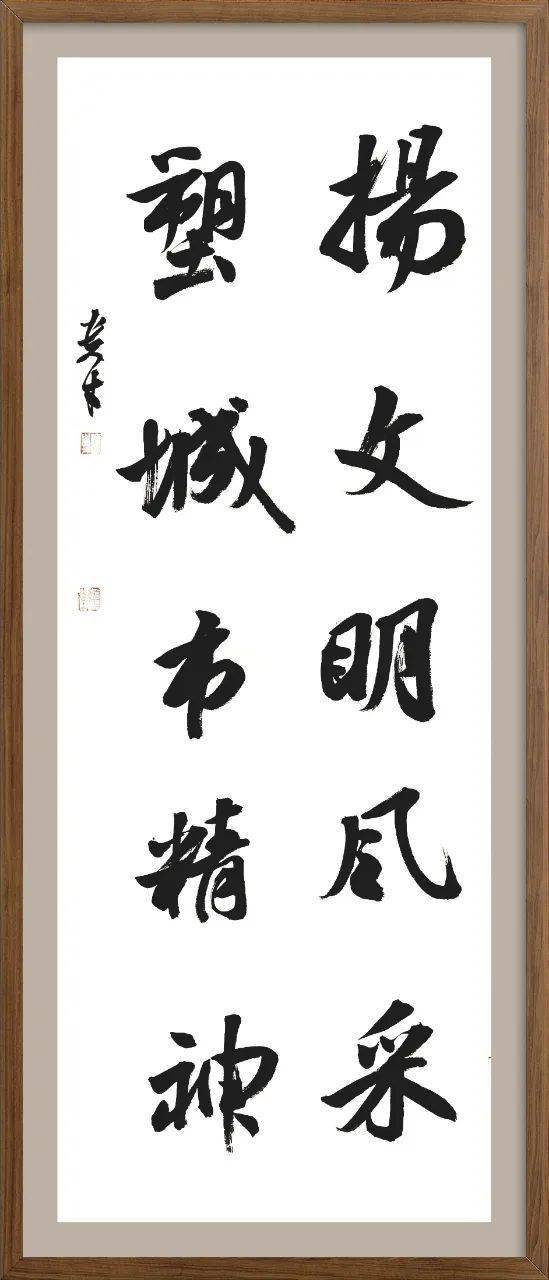 揚文明風采
塑城市精神